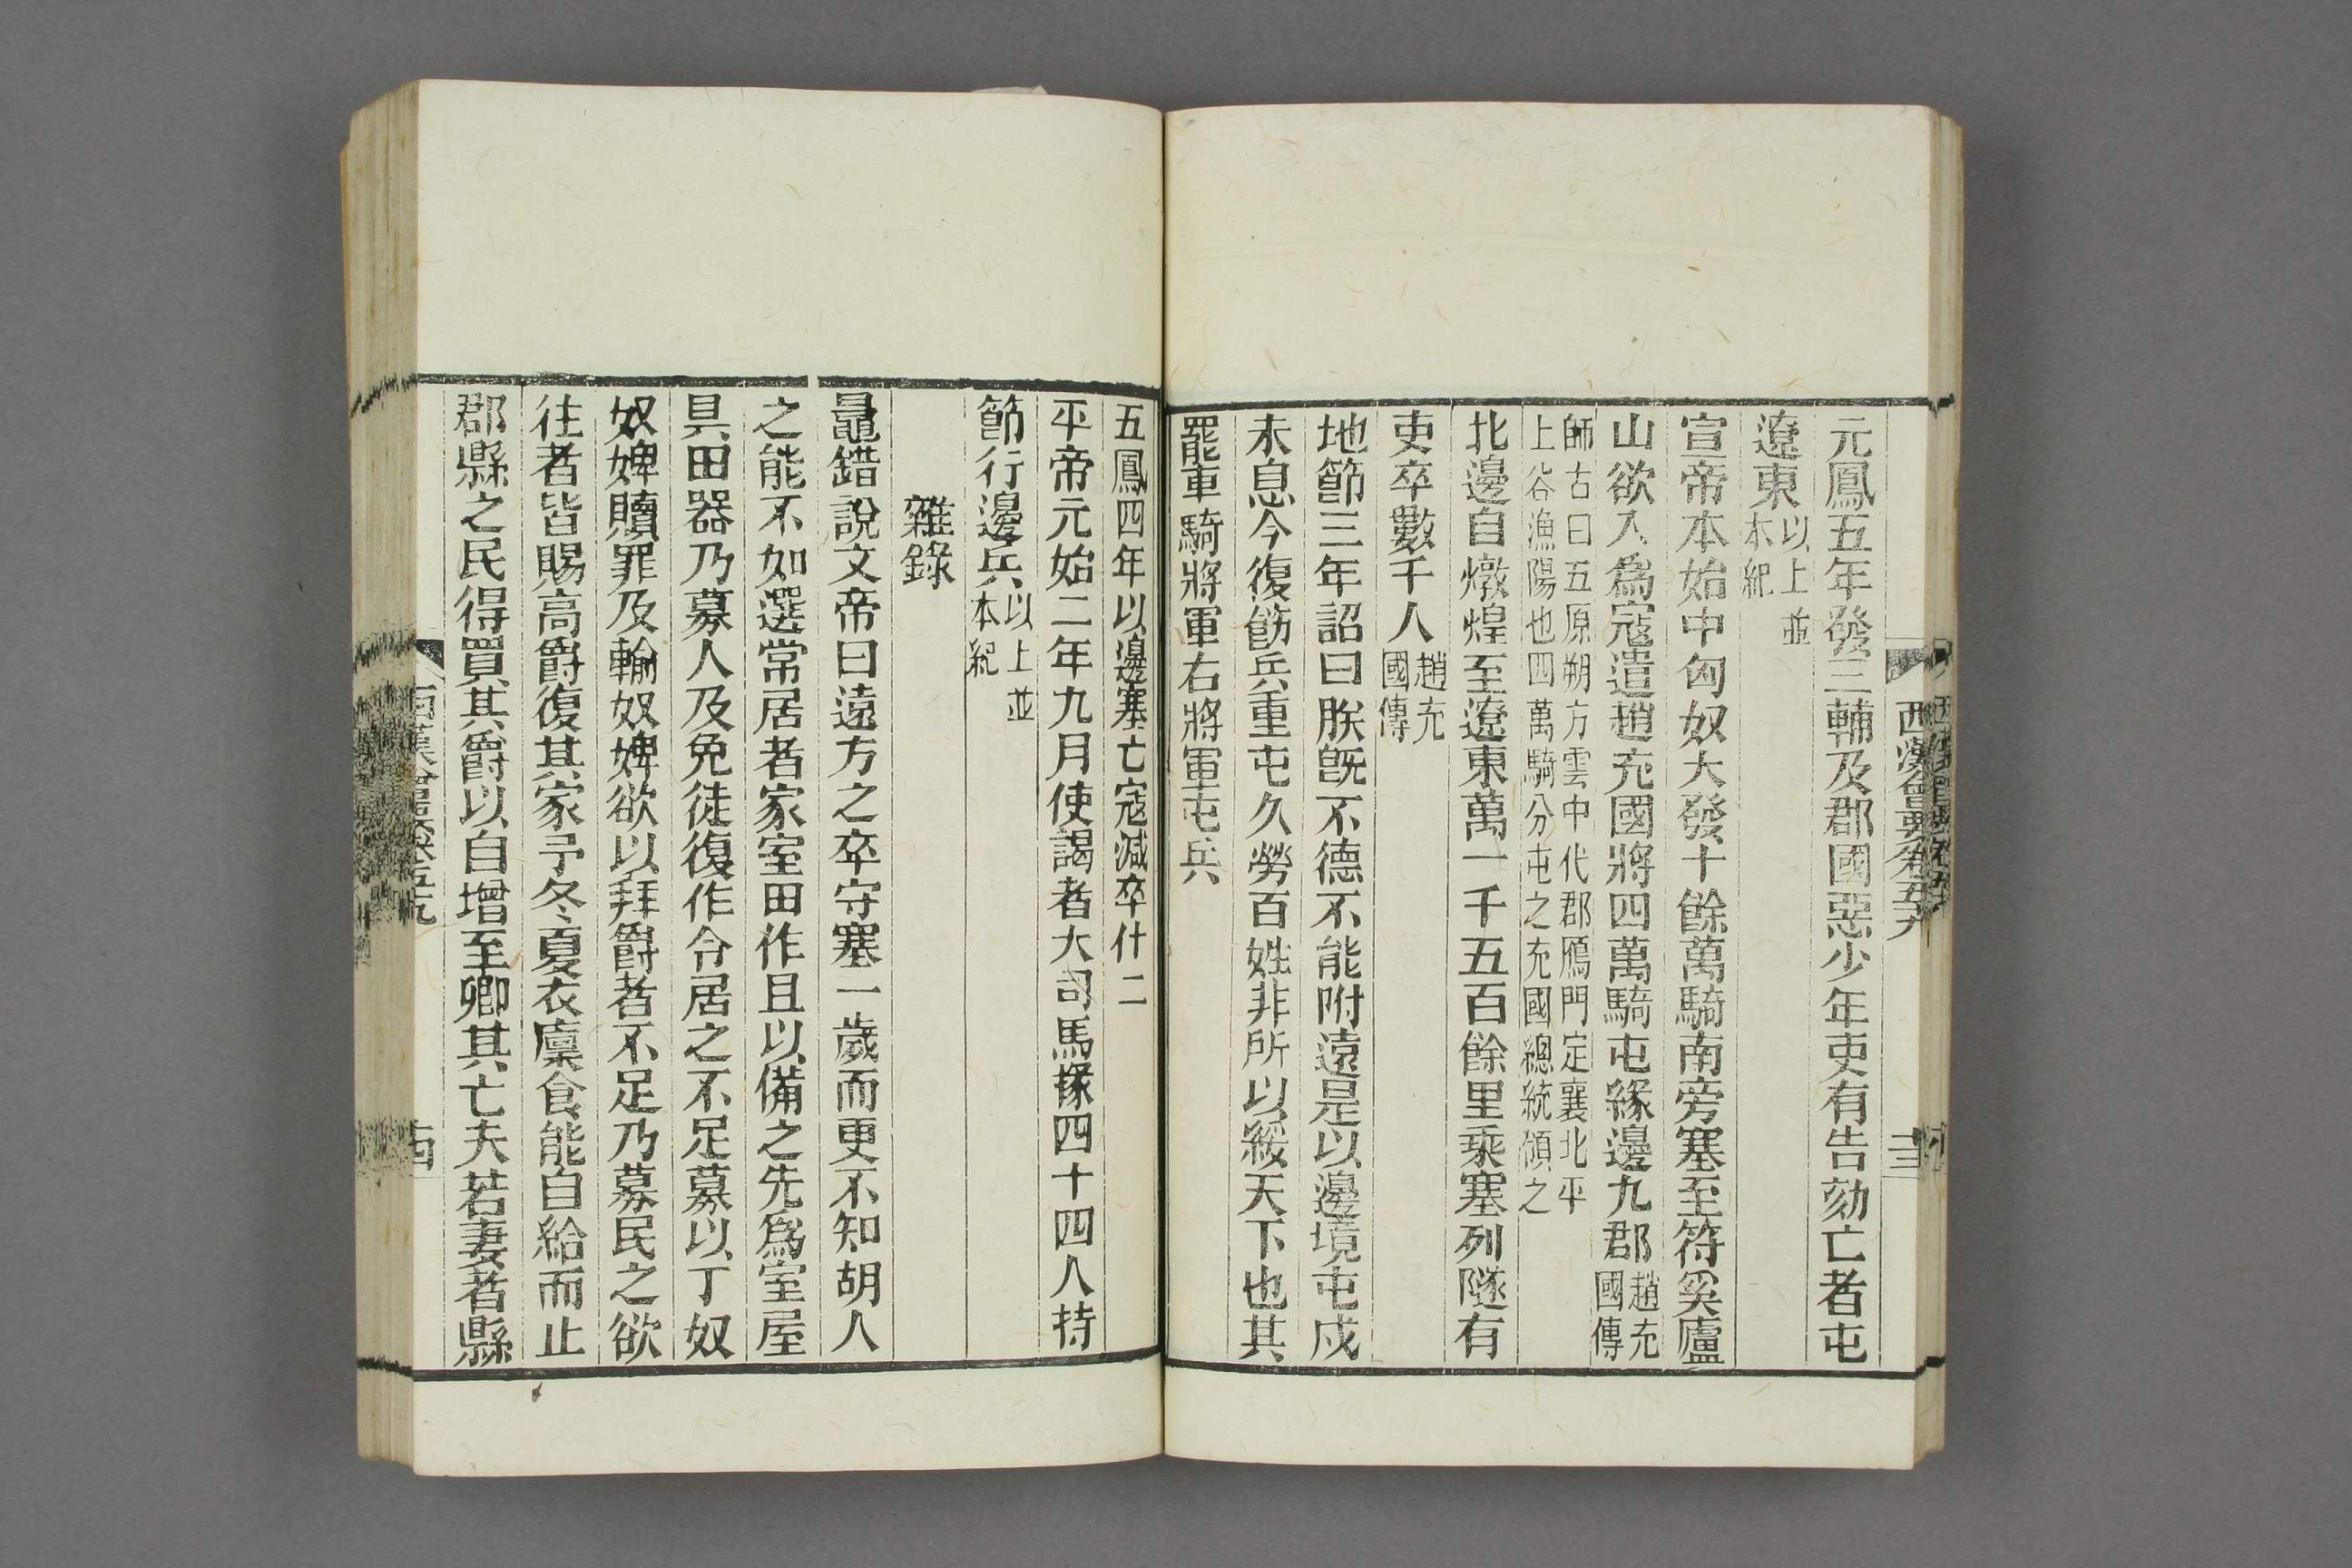 元鳳五年發三輔及郡國惡少年吏有告劾亡者屯
遼東以上並本紀
宣帝本始中匈奴大發十餘萬騎南旁塞至符奚廬
山欲入為寇遣趙充國將四萬騎屯緣邊九郡趙充國傳
師古曰五原朔方雲中代郡鴈門定襄北平
上谷漁陽也四萬騎分屯之充國總統領之
北邊自燉煌至遼東萬一千五百餘里乘塞列隧有
吏卒數千人趙充國傳
地節三年詔曰朕旣不德不能附遠是以邊境屯戍
未息今復飭兵重屯久勞百姓非所以綏天下也其
罷車騎將軍右將軍屯兵
五鳳四年以邊塞亡寇減卒什二
平帝元始二年九月使謁者大司馬掾四十四人持
節行邊兵以上並本紀
雜錄
鼂錯說文帝曰遠方之卒守塞一歲而更不知胡人
之能不如選常居者家室田作且以備之先為室屋
具田器乃募人及免徒復作令居之不足募以丁奴
奴婢贖罪及輸奴婢欲以拜爵者不足乃募民之欲
往者皆賜高爵復其家予冬夏衣廩食能自給而止
郡縣之民得買其爵以自增至卿其亡夫若妻者縣